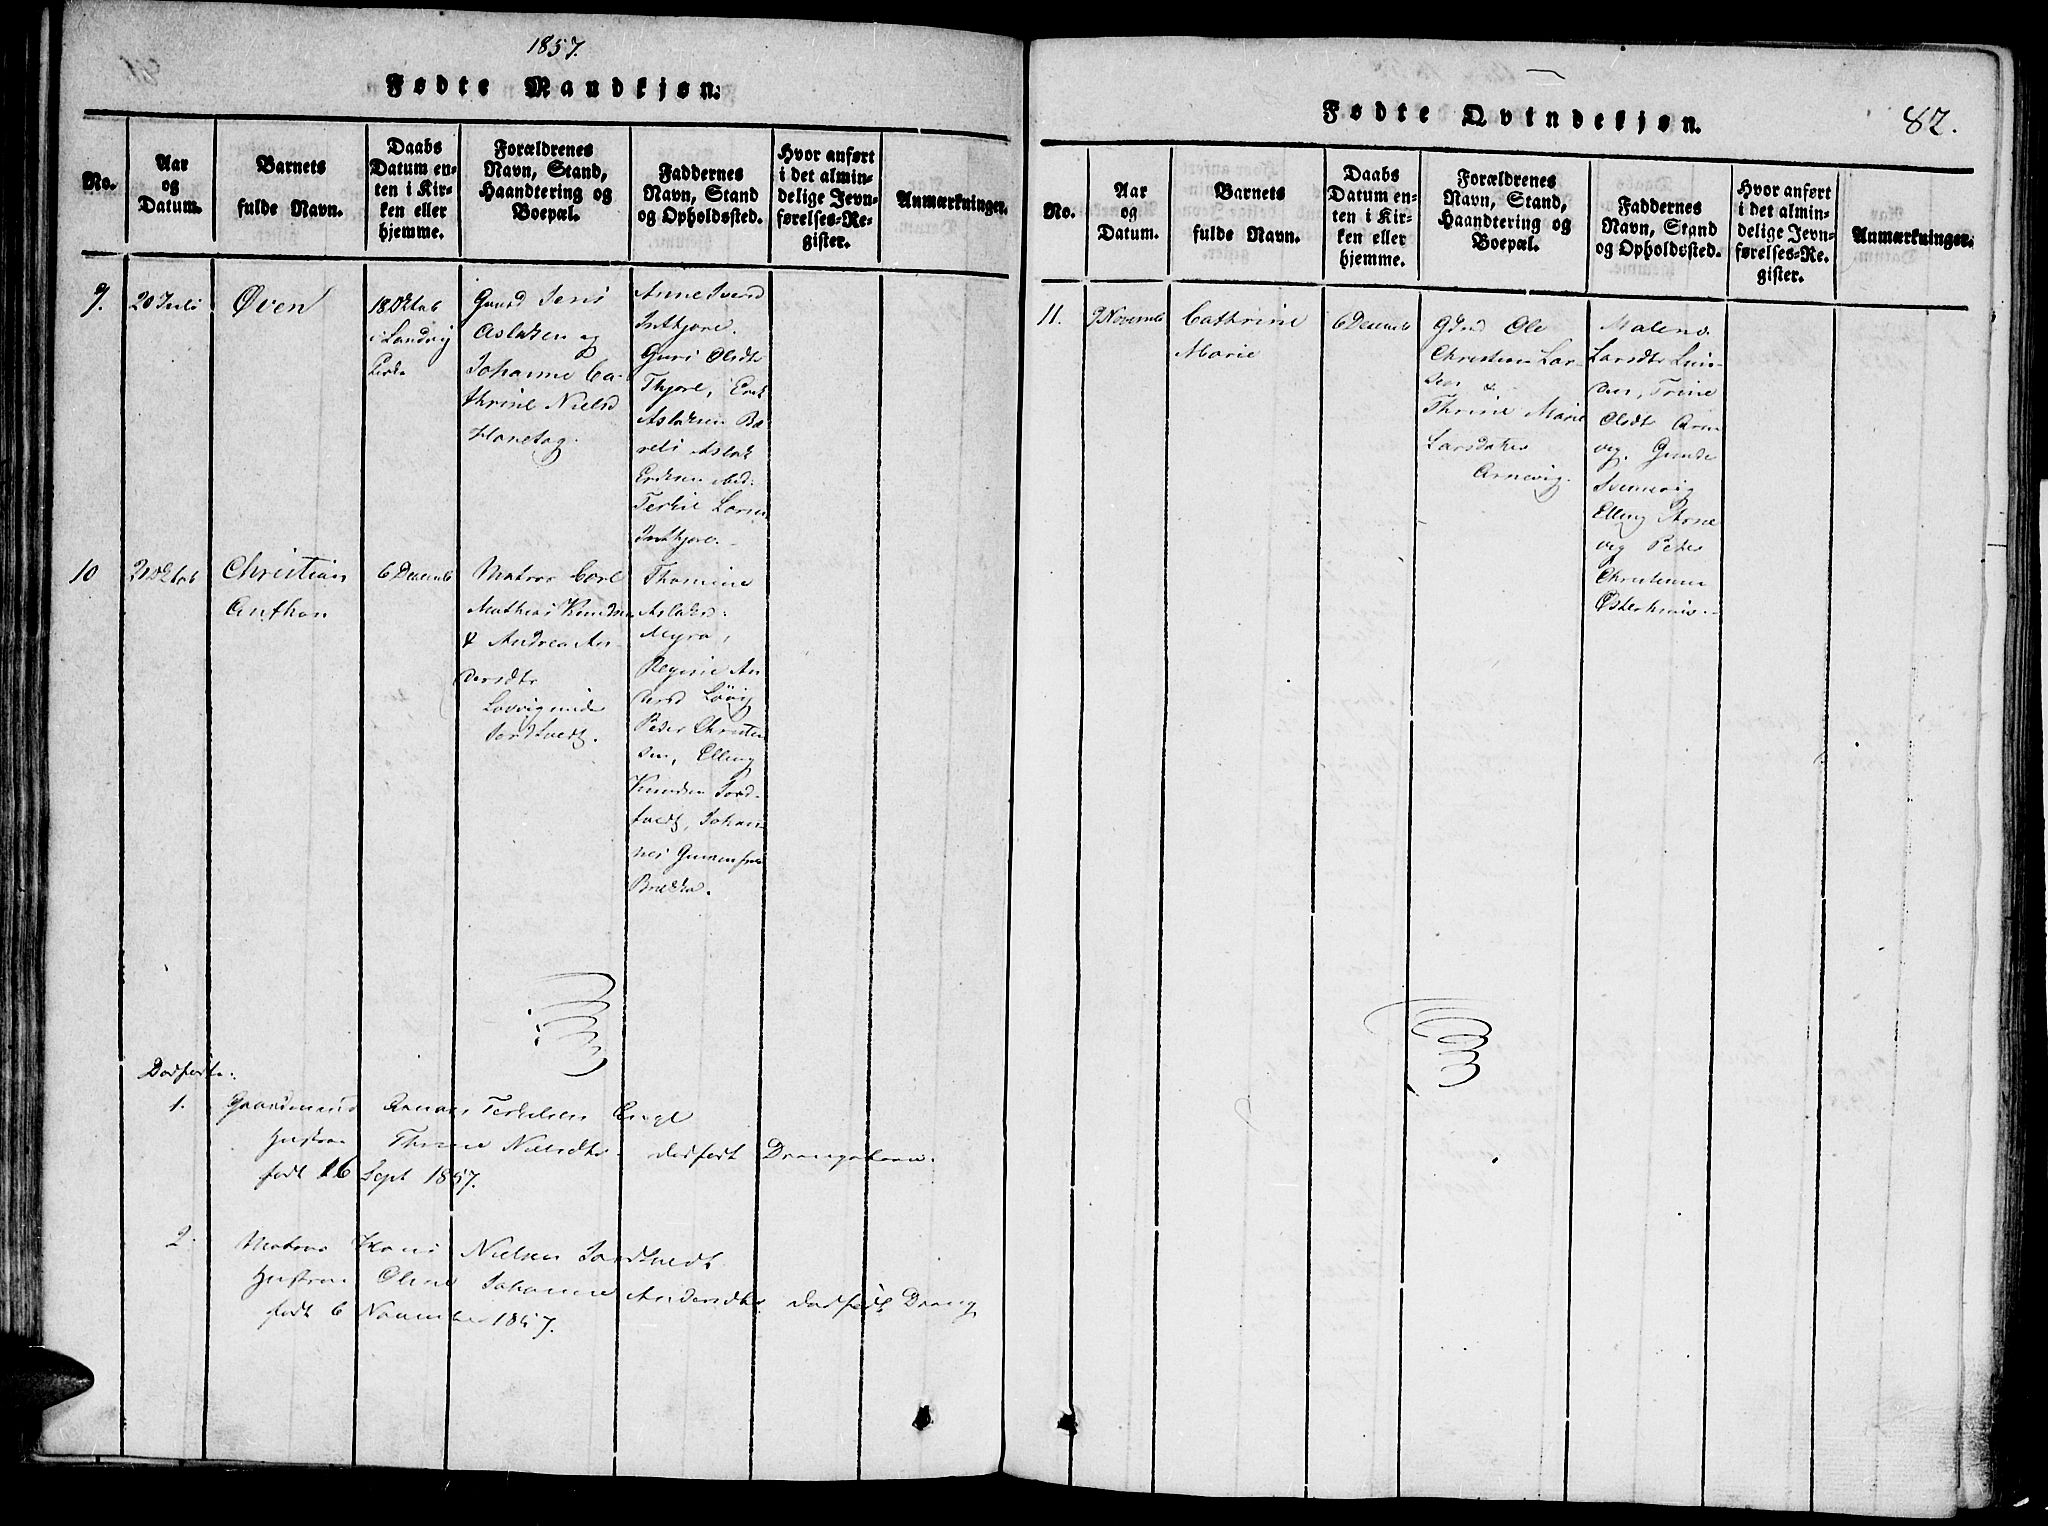 1857.
Fødte Mandkjøn.
No.
Aar
og
Datum.
Barnets
fulde Navn.
Daabs
Datum en-
ten i Kir-
ken eller
hjemme.
Forældrenes
Navn, Stand,
Haandtering og
Boepæl.
Faddernes
Navn, Stand
og Opholdssted.
Hvor anført
i det almin-
delige Jevn-
førelses-Re-
gister.
Anmærkninger.
9.
20 Juli
Øven
18 Oktob
i Landvig
Kirke
Gaard Jens
Aslaksen og
Johanne Ca-
thrine Nielsd
Hanetog.
Anne Iversd
Inntjore.
Guri Olsdt
Thjore, Erik
Aslaksen
Aslak
Eriksen ibid.
Larsen
Inntjore.
10
21 Oktob
Christian
Anthon
6 Decemb
Matros Carl
Mathias Knudsen
& Andrea An-
dersdtr
Sordtvedt.
Thomine
Aslaksd.
Myra,
Regine An
dersd Løvig
Peder Christen
sen, Elling
Knudsen Sord-
tvedt, Johan
nes
Dødfødte.
1. Gaardmand Terkelsen
Hustru Thrine Nielsdtr. dødfødt Drengebarn.
født 16 Sept 1857.
2. Matros Hans Nielsen Sordtvedt
Hustru Oline Johanne Andersdtr. dødfødt Dreng
født 6 November 1857.
Fødte Qvindekjøn.
82.
No.
Aar
og
Datum.
Barnets
fulde Navn.
Daabs
Datum en-
ten i Kir-
ken eller
hjemme.
Forældrenes
Navn, Stand,
Haandtering og
Boepæl.
Faddernes
Navn, Stand
og Opholdssted.
Hvor anført
i det almin-
delige Jevn-
førelses-Re-
gister.
Anmærkninger.
11.
9 Novemb
Cathrine
Marie
6 Decemb
Ole
Christian Lar-
sen &
Thrine Marie
Larsdatter
Arnevig.
Malene
Larsdtr
Trine
Olsdt Arne
vig. Gunde
Elling Arne
vig Peder
Christensen
Østerhuus.